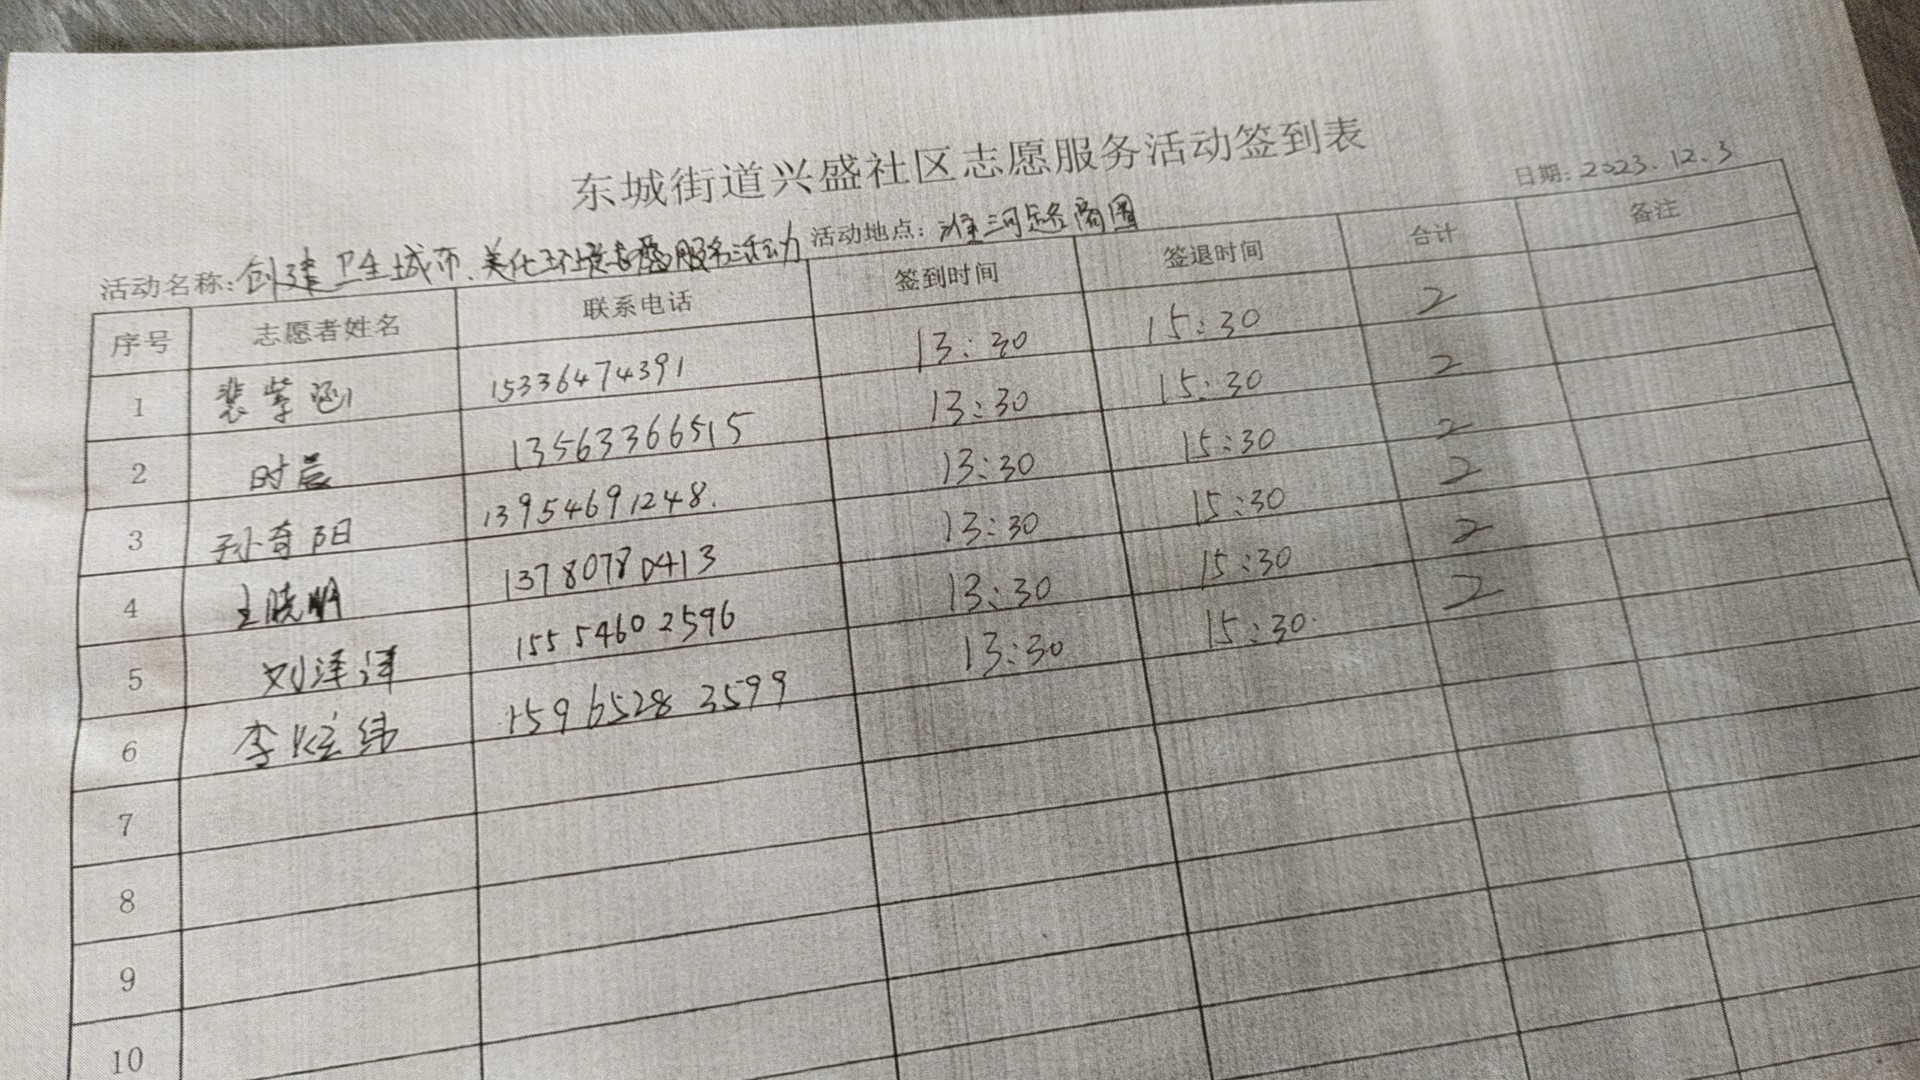 东城街道兴盛社区志愿服务活动签到表
日期: 2023.12.3
活动名称: 创建卫生城市、美化环境志愿服务活动 活动地点: 淮河路商圈
序号 志愿者姓名 联系电话 签到时间 签退时间 合计 备注
1 裴紫涵 15336474391 13:30 15:30 2
2 时晨 13563366515 13:30 15:30 2
3 孙奇阳 13954691248. 13:30 15:30 2
4 王晓明 13780780413 13:30 15:30 2
5 刘泽泽 15554602596 13:30 15:30 2
6 李 纬 15965283599 13:30 15:30. 2
7
8
9
10